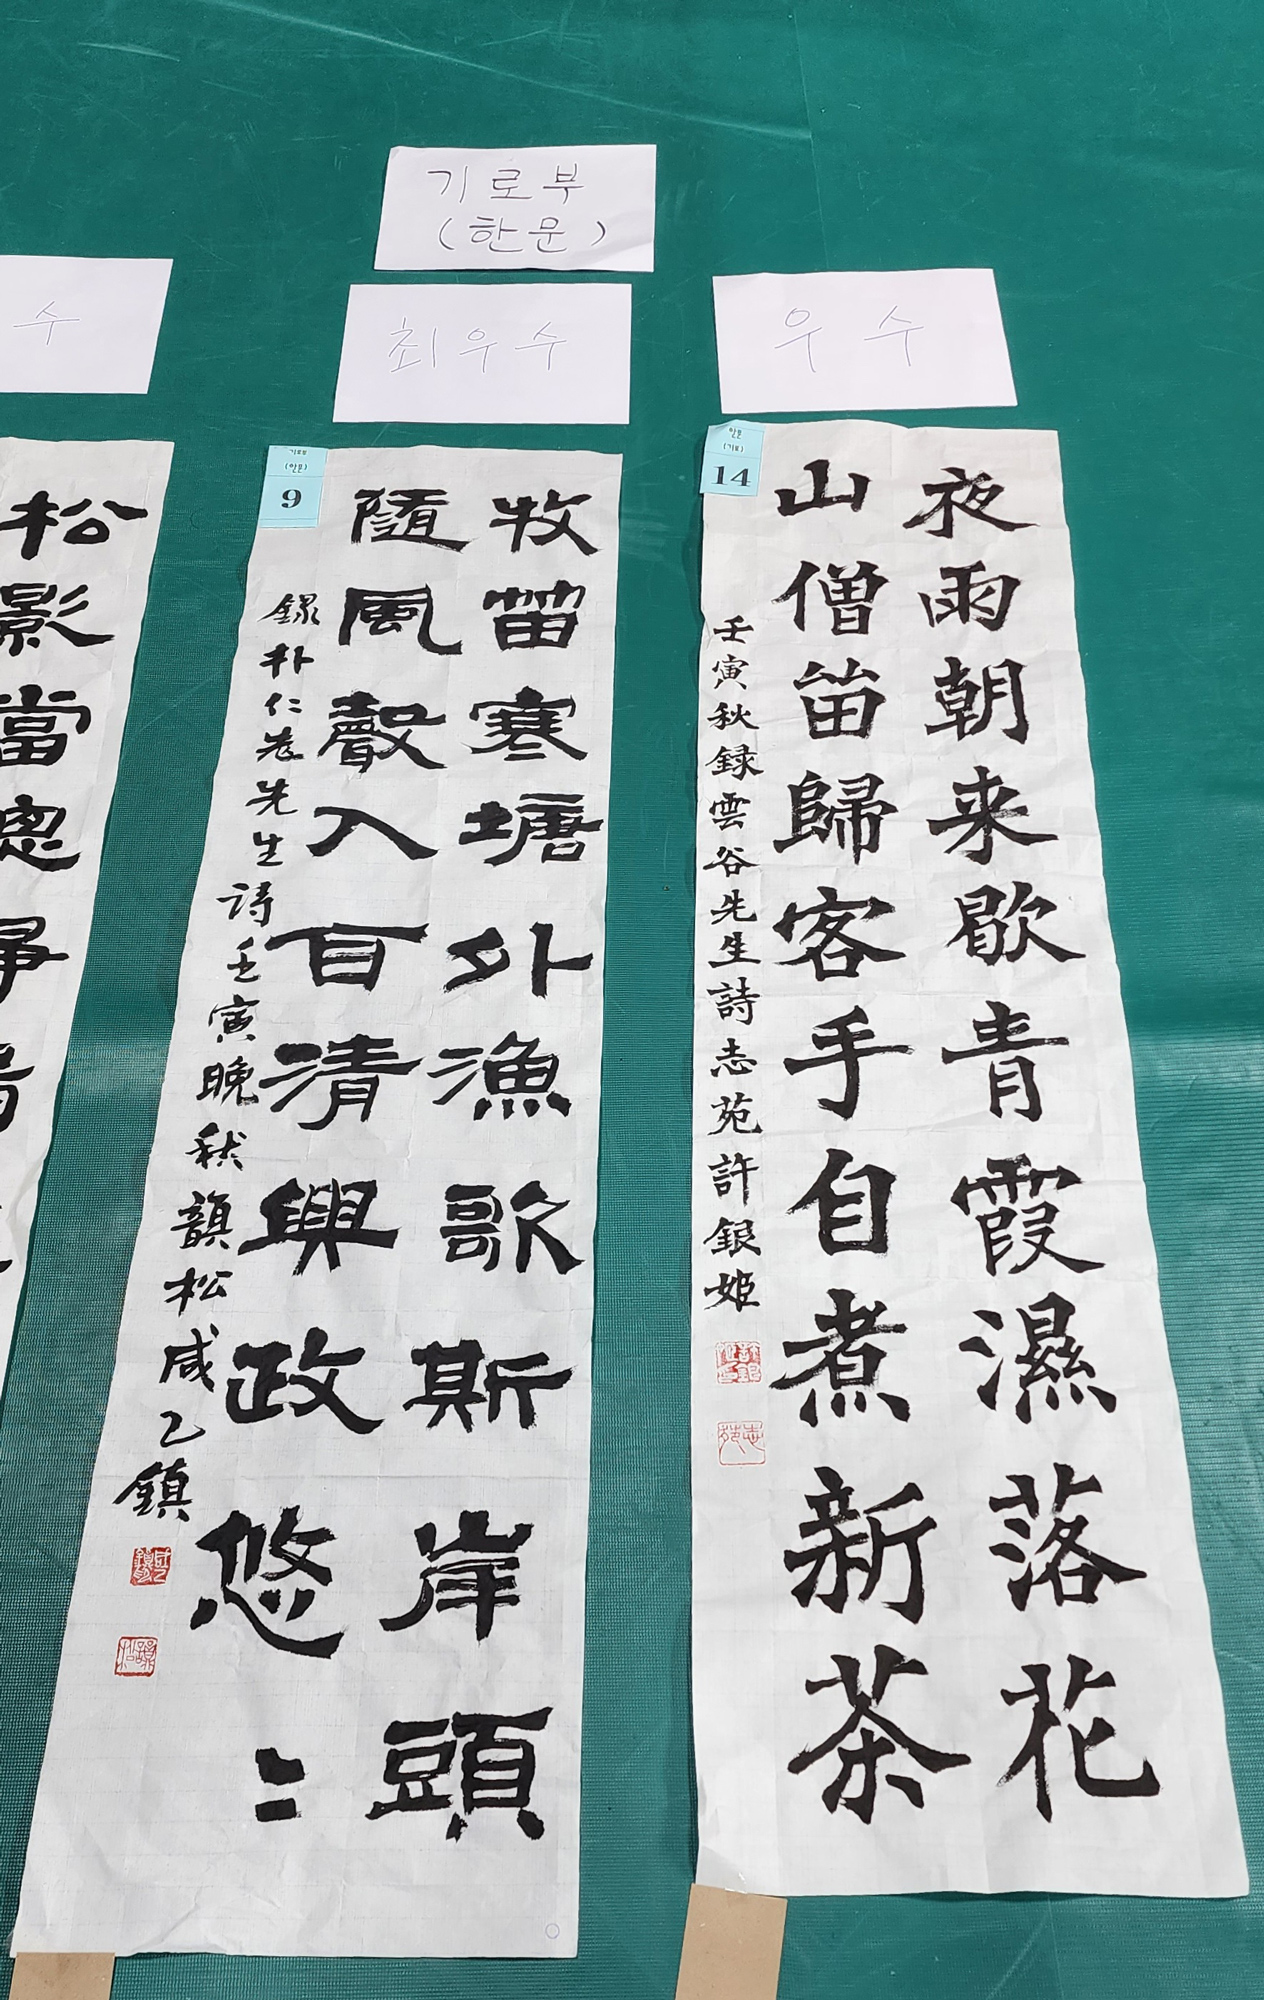 기로부
(한문)
수
최우수
우수
松影當
기로부
(한문)
9
牧笛寒塘外漁歌斯岸頭
隨風聲入百清興政悠〻
錄朴仁老先生詩壬寅晩秋韻松咸乙鎭
한문
(기로)
14
夜雨朝来歇青霞濕落花
山僧留歸客手自煮新茶
壬寅秋録雲谷先生詩志苑許銀姬